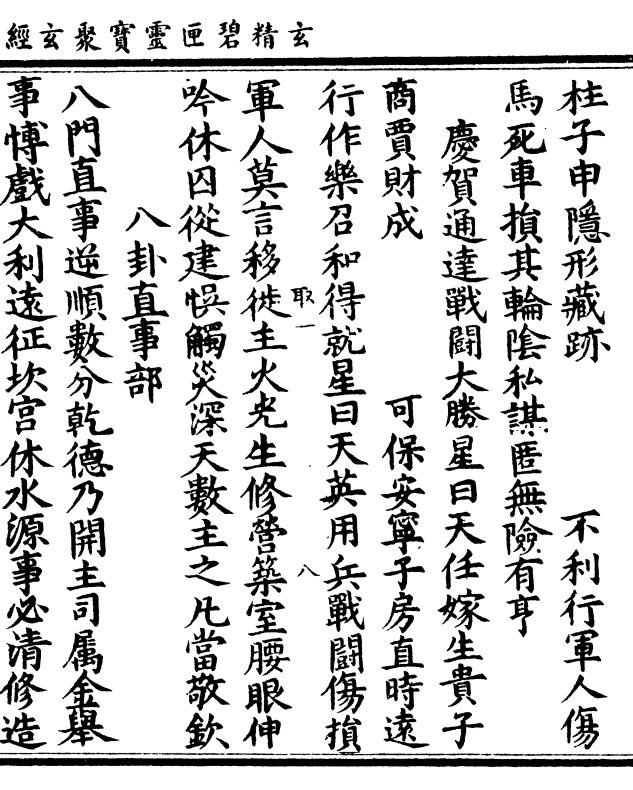 玄精碧匣靈寶聚玄經
柱子申隱形藏跡　不利行軍人傷
馬死車損其輪陰私謀匿無險有亨
慶賀通達戰鬪大勝星曰天任嫁生貴子
商賈財成　可保安寧子房直時遠
行作樂召和得就星曰天英用兵戰鬪傷損
取一
八
軍人莫言移徙主火光生修營築室腰眼伸
吟休囚從建悞觸災深天數主之凡當敬欽
八卦直事部
八門直事逆順數分乾德乃開主司属金舉
事博戲大利遠征坎宫休水源事必清修造